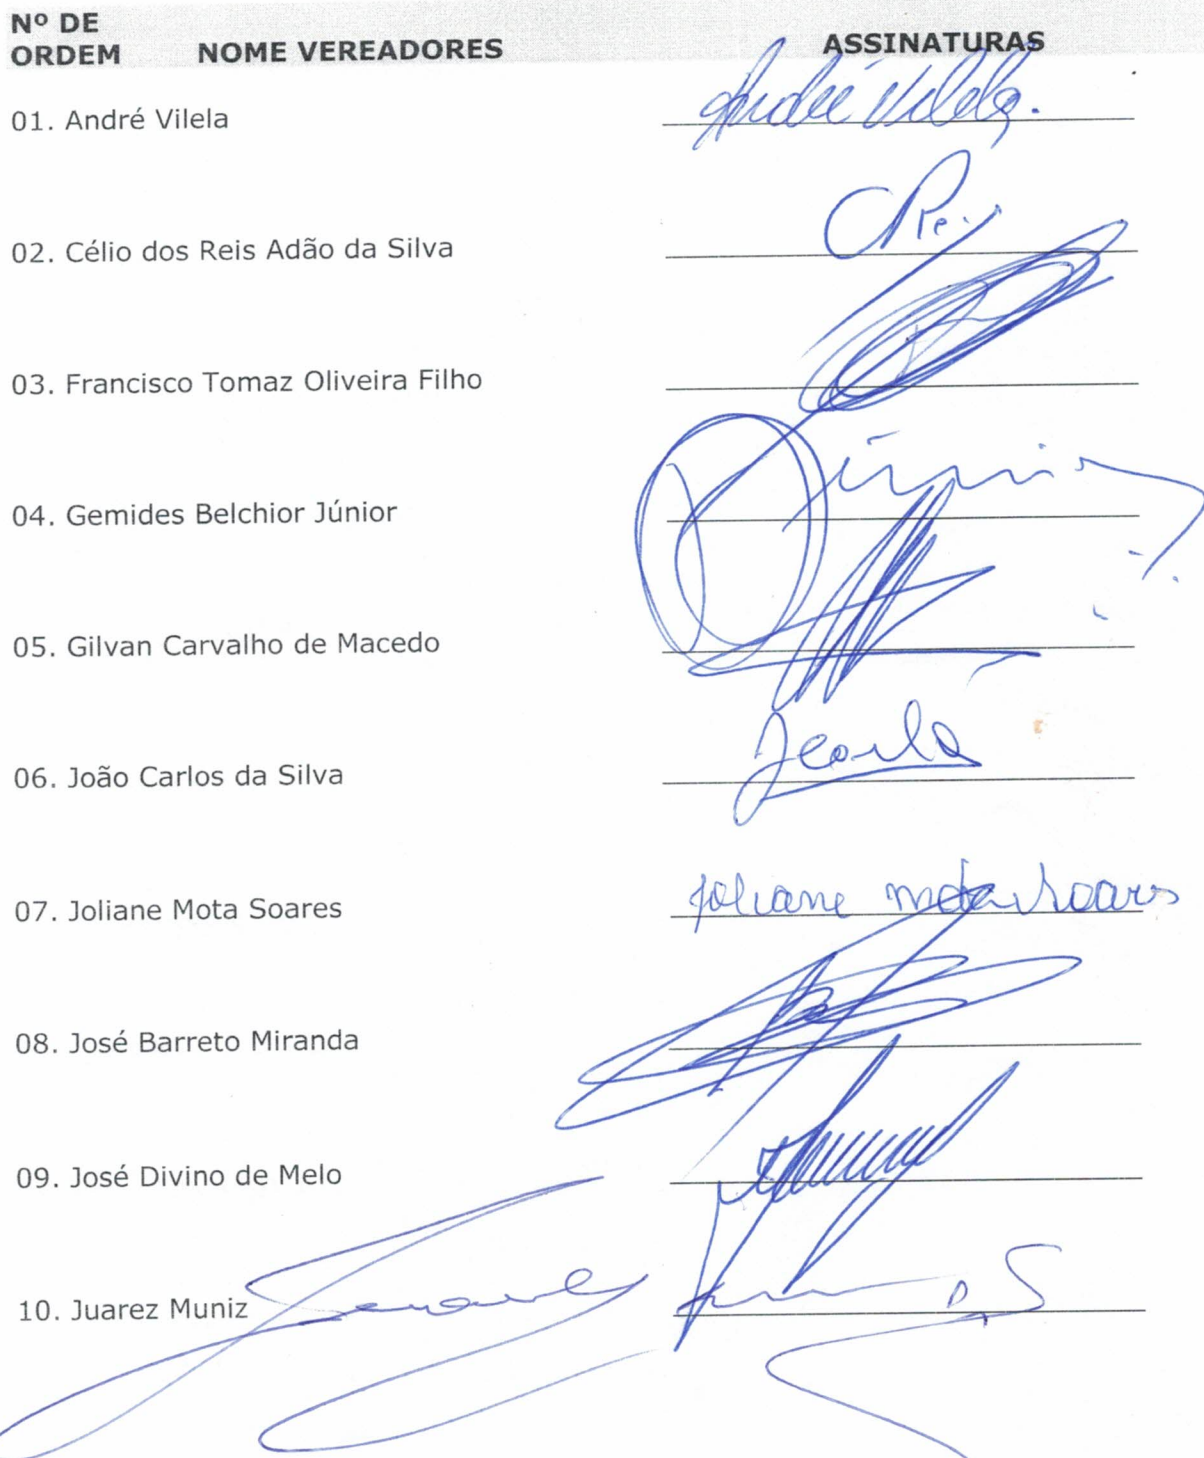 Nº DE
ORDEM NOME VEREADORES ASSINATURAS
01. André Vilela André Vilela.
02. Célio dos Reis Adão da Silva CReis
03. Francisco Tomaz Oliveira Filho
04. Gemides Belchior Júnior Júnior
05. Gilvan Carvalho de Macedo
06. João Carlos da Silva
07. Joliane Mota Soares Joliane Mota Soares
08. José Barreto Miranda
09. José Divino de Melo
10. Juarez Muniz